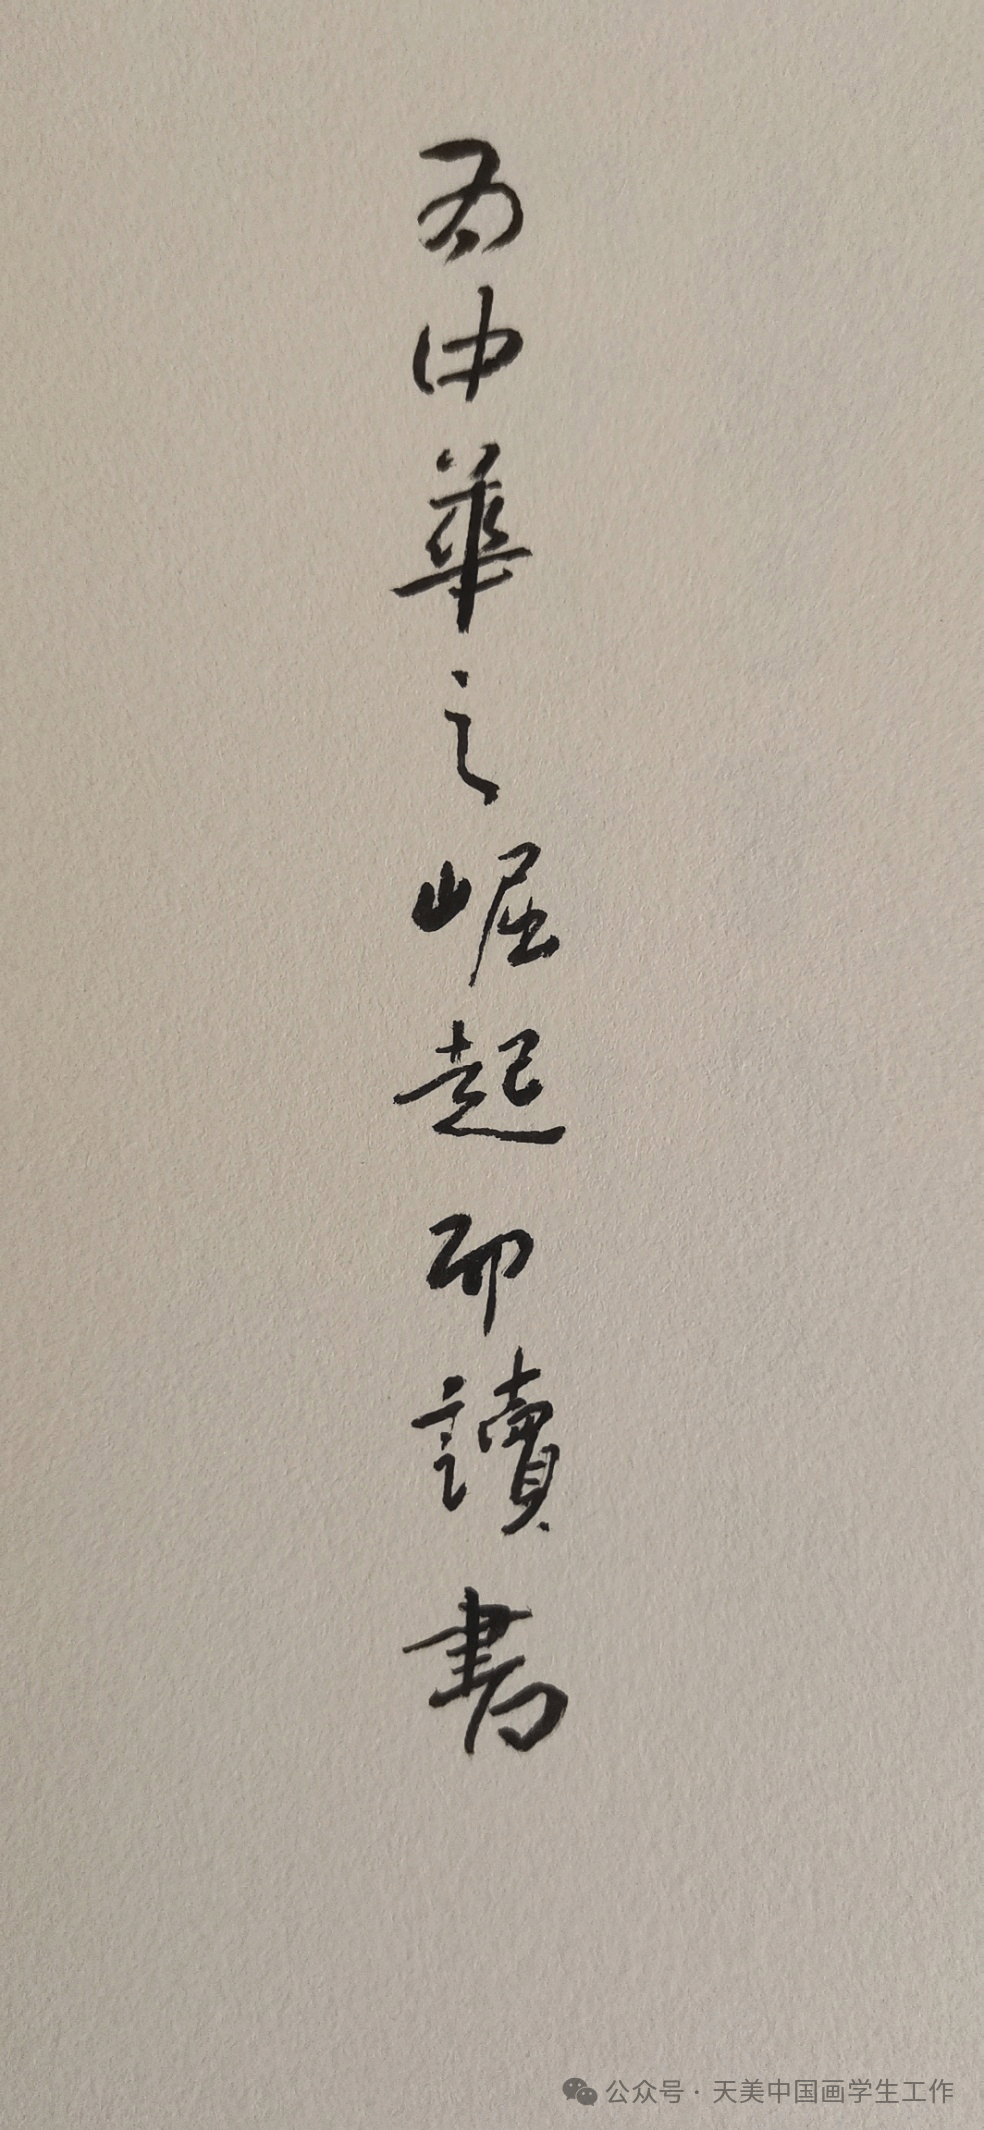 为中華之崛起而讀書
公众号 · 天美中国画学生工作